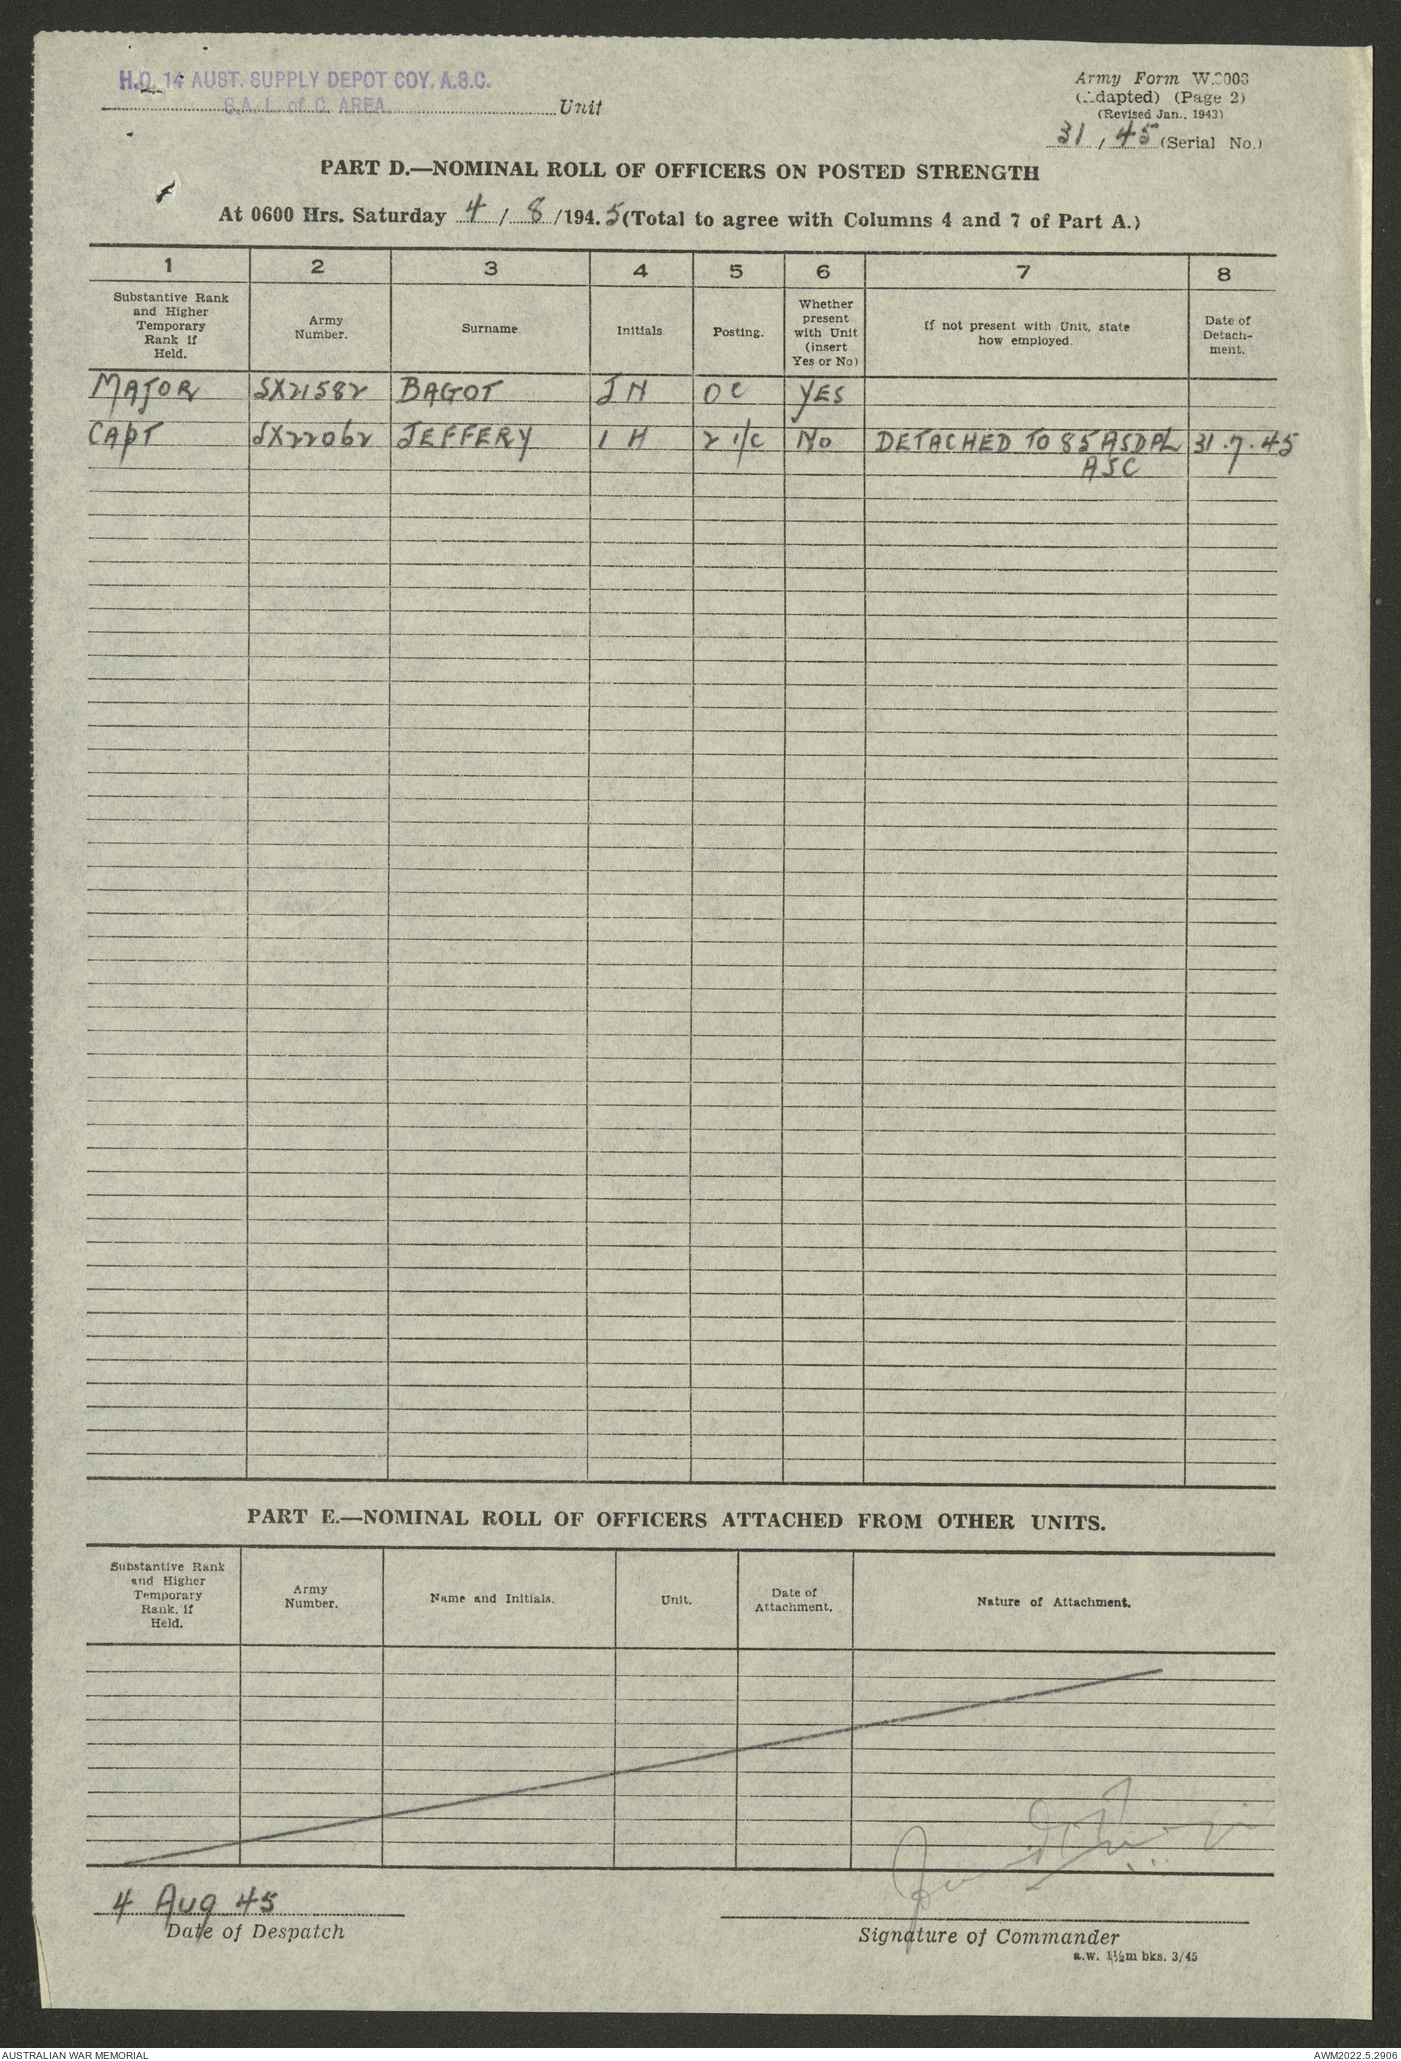 H.Q. 14 AUST. SUPPLY DEPOT COY. A.S.C.
S.A. L. of C. AREA. Unit
Army Form W.3008
(Adapted) (Page 2)
(Revised Jan., 1943)
31 / 45 (Serial No.)
PART D.—NOMINAL ROLL OF OFFICERS ON POSTED STRENGTH
At 0600 Hrs. Saturday 4 / 8 /1945 (Total to agree with Columns 4 and 7 of Part A.)
1 2 3 4 5 6 7 8
Substantive Rank and Higher Temporary Rank if Held. Army Number. Surname Initials Posting. Whether present with Unit (insert Yes or No) If not present with Unit, state how employed. Date of Detach-ment.
MAJOR SX21582 BAGOT J N OC YES
CAPT SX22062 JEFFERY I H 2 I/C No DETACHED TO 85 ASDPL 31.7.45
ASC
PART E.—NOMINAL ROLL OF OFFICERS ATTACHED FROM OTHER UNITS.
Substantive Rank and Higher Temporary Rank, if Held. Army Number. Name and Initials. Unit. Date of Attachment. Nature of Attachment.
4 Aug 45
Date of Despatch
Signature of Commander
a.w. 1½m bks. 3/45
AUSTRALIAN WAR MEMORIAL AWM2022.5.2906